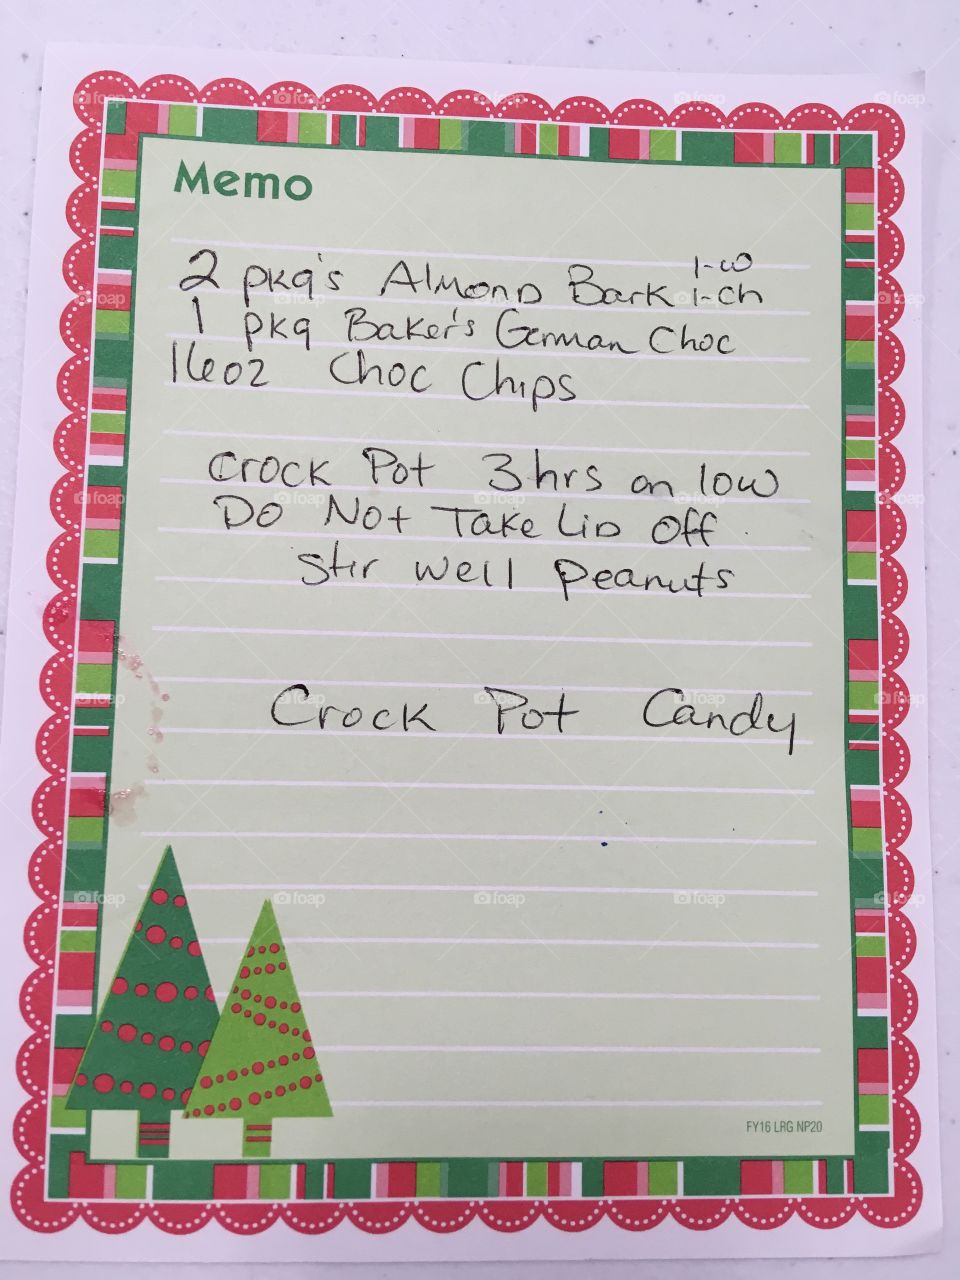 Memo
2 pkg's Almond Bark 1-w
1-ch
1 pkg Baker's German Choc
16oz Choc Chips
Crock Pot 3hrs on low
Do Not Take Lid Off.
Stir well Peanuts
Crock Pot Candy
FY16 LRG NP20